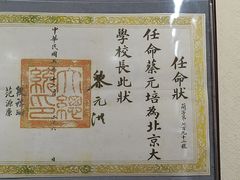 任命狀
任命蔡元培為北京大
學校長此狀
黎元洪
中華民國
大總統印
范源廉